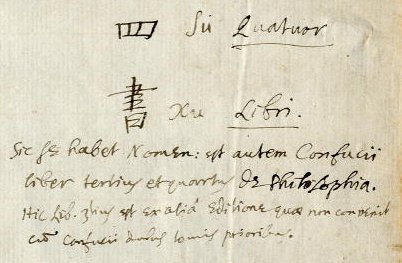 四 Su Quatuor
書 Xu Libri.
Sic se habet Nomen: est autem Confucii
liber tertius et quartus de Philosophia.
Hic Lib. 3tius est ex aliâ Editione quæ non convenit
cū Confucii duobus tomis prioribus.